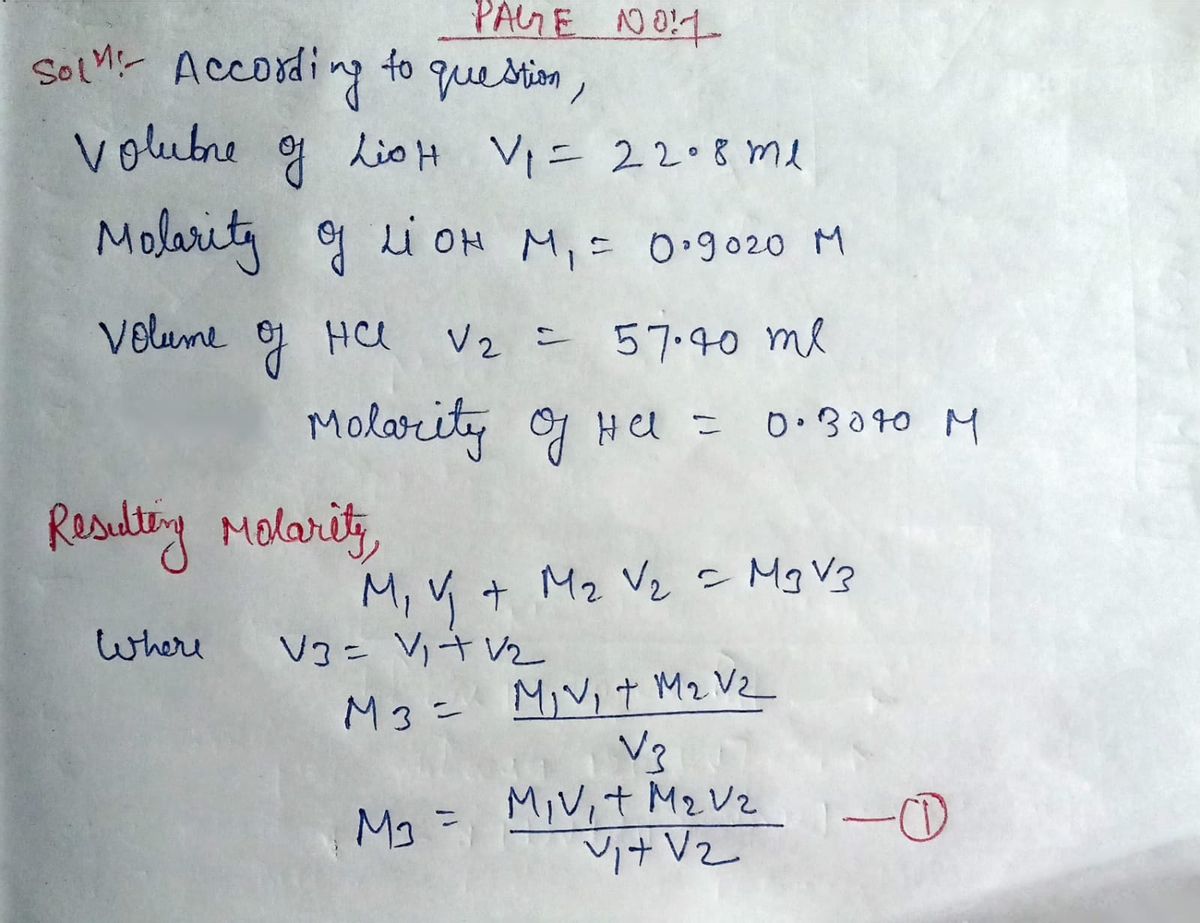 PAGE NO:1
Solⁿ:- According to question,
Volubne of LiOH V₁ = 22.8 ml
Molarity of LiOH M₁ = 0.9020 M
Volume of HCl V₂ = 57.90 ml
Molarity of HCl = 0.3090 M
Resulting Molarity,
M₁V₁ + M₂V₂ = M₃V₃
Where V₃ = V₁ + V₂
M₃ = M₁V₁ + M₂V₂
V₃
M₃ = M₁V₁ + M₂V₂ —①
V₁ + V₂